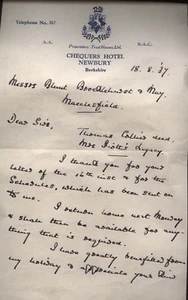 Telephone No. 767
A.A.
R.A.C.
Proprietors: Trust Houses, Ltd.
CHEQUERS HOTEL
NEWBURY
Berkshire
18.8.37
Messrs Blunt Brocklehurst & May,
Macclesfield.
Dear Sirs,
Thomas Collins decd.
Mrs Legacy.
I thank you for your
letter of the 16th inst & for the
Schedules, which has been sent on
to me.
I return home next Monday
& shall then be available for any-
thing that is required.
I have greatly benefited from
my holiday & appreciate your kind